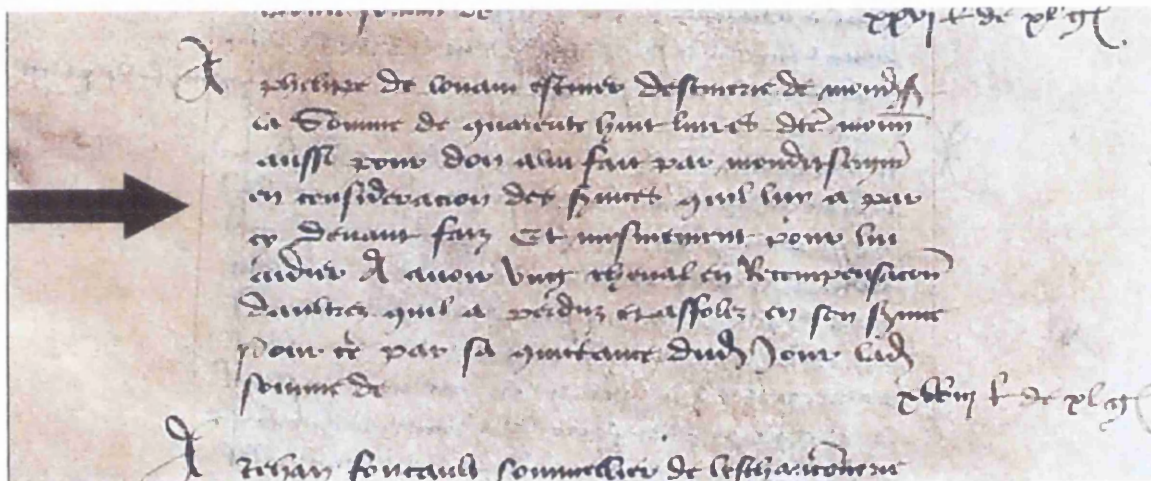 somme de xxvi l de xl g
A
phelippe de escuier descuierie de monds
la Somme de quarente huit livres dce monn
aussi pour don a lui fait par monditseigneur
en consideracion des svices quil lui a par
cy devant faiz Et mesmement pour lui
aidier A avoir ung cheval en Recompensacion
daultres quil a perduz et affolez en son svice
Pour ce par sa quittance dud Jour lad
somme de xlviii l de xl g
A
Jehan foucault sommellier de leschanconnerie